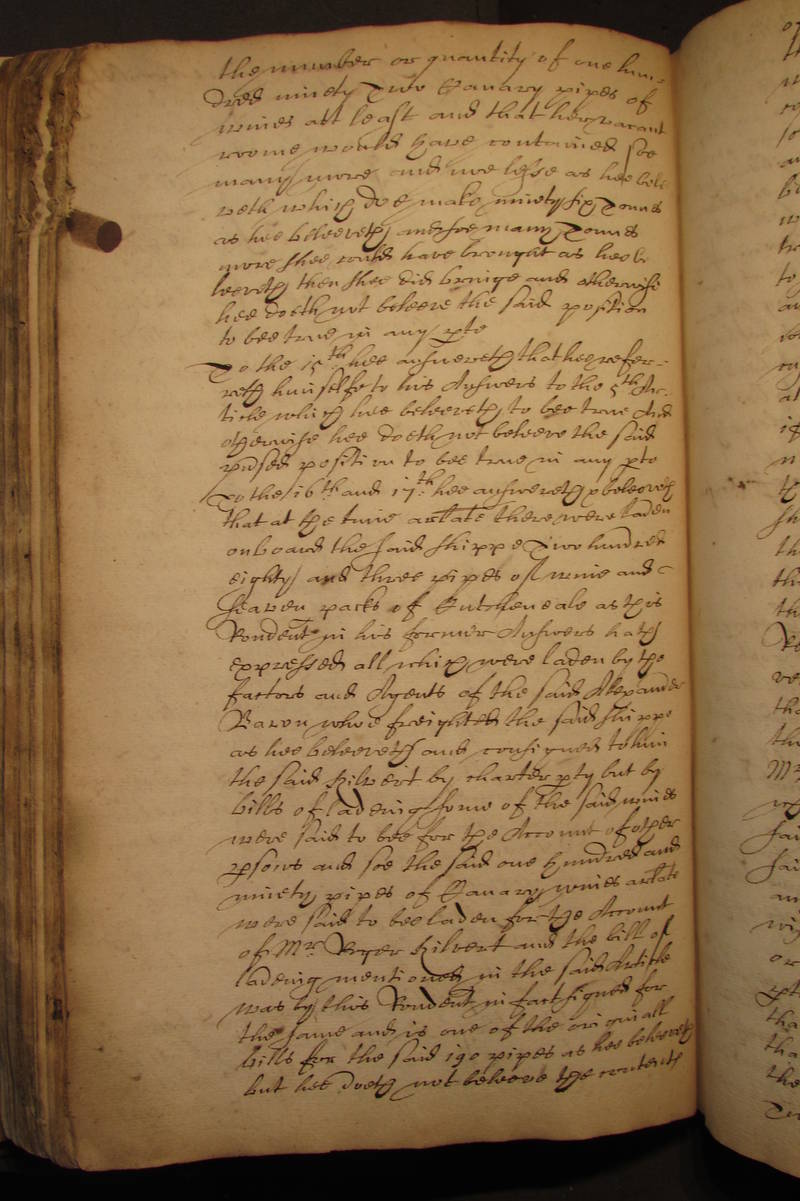 the number or quantity of one hun-
dred ninety Two Canary pipes of
wines att least and that her vacant
roome would have contained soe
many more and noe lesse as hee beleeveth
which doe make ninety six Tonnes
as hee beleeveth and soe many Tonnes
more shee could have brought as hee be
leeveth then shee did bringe and otherwise
hee doeth not beleeve the said position
to bee true in any pte
To the 15th hee answereth that hee refer-
reth himselfe to his Answers to the 5th Ar-
ticle which hee beleeveth to bee true And
otherwise hee doeth not beleeve the said
position to bee true in any pte
To the 16th and 17th hee answereth & beleeveth
that at the time arlate there were laden
on board the said shippe Two hundred
eighty and three pipes of wine and
seaven packs of as this
Rondent in his former Answers hath
expressed all which were laden by the
factors and Agents of the said Alexander
Baron whoe freighted the said shippe
as hee beleeveth and consigned to him
the said Kilvert by charter pty but by
bills of lading some of the said wines
were said to bee for the Account of other
psons and soe the said one hundred and
ninety pipes of Canary wines arlate
were said to bee laden for the Account
of Mr Roger Kilvert and the bill of
lading mentioned in the said Article
was by this Rondent in fact signed for
the same and is one of the originall
bills for the said 190 pipes as hee beleeveth
but hee doeth not beleeve the contents